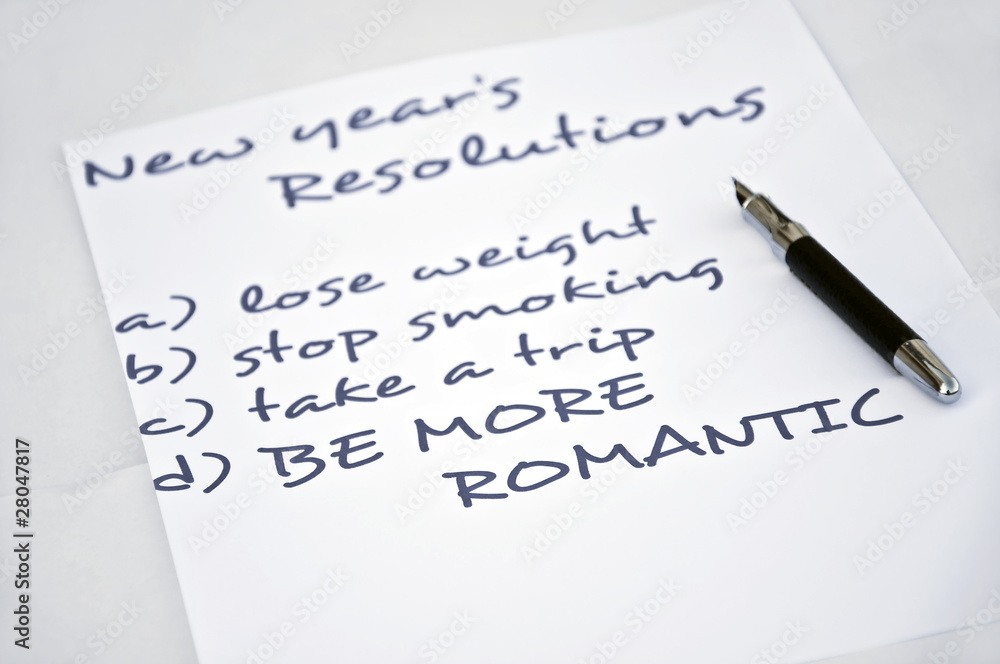 New year's
Resolutions
a) lose weight
b) stop smoking
c) take a trip
d) BE MORE
ROMANTIC
Adobe Stock | #28047817